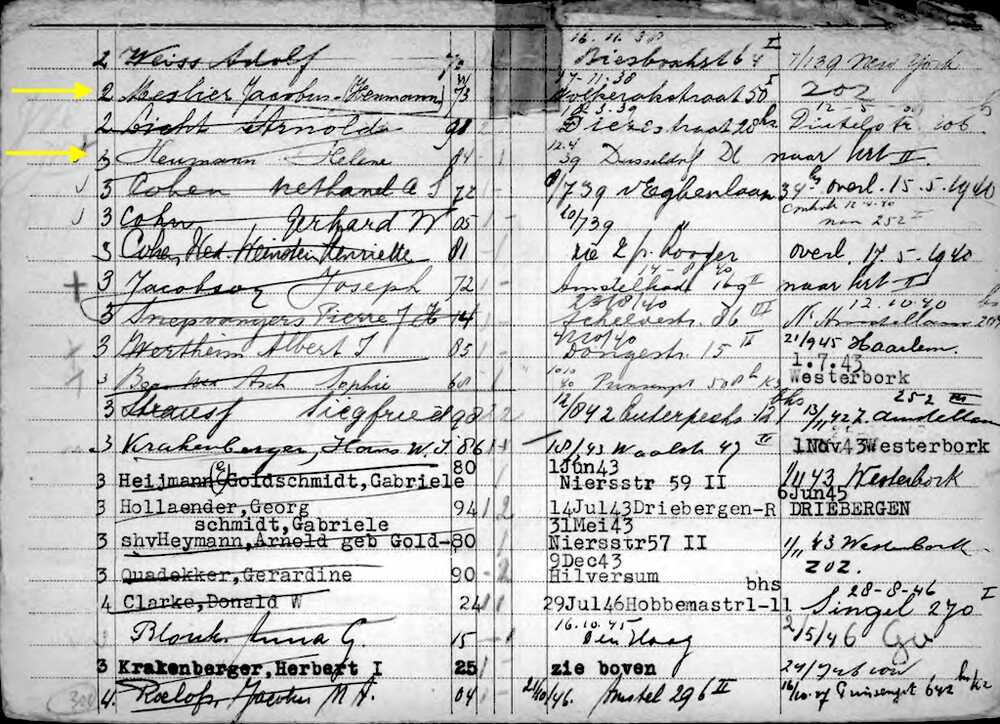 2 Weiss Adolf 16.11.38 Biesboschst 64 I 7/1 39 New York
2 Meslier Jacobus (Heumann) 73 17-11-38 Volkerakstraat 50 202
2 Licht Arnold 98 Diezestraat 28 hs Dintelstr 106
3 Heumann Helene 84 - 1 12.4 39 Dusseldorf Dl naar hrt II.
3 Cohen Nethanel A S 72 39 v Eeghenlaan 34 hs overl. 15.5-1940
3 Cohn Gerhard W 05 1 - 20/7 39 " naar 252
3 Cohen, Wed. Weinstein Henriette 81 zie 2 p. hooger overl. 17.5-1940
3 Jacobson Joseph 72 1 - 14-8 40 Amstelkade 169 II naar hrt II
3 Snepvangers Pierre J H 14 23/8/40 Scheldestr. 86 III 12.10.40 N. Amstellaan
3 Wertheim Albert J 85 Dongestr. 15 II 21/9 45 Haarlem.
3 Asch Sophie 68 40 Prinsengr 508 hs 1.7.43 Westerbork
3 Strauss Siegfried 98 12/8 42 Euterpestr. 252 III 13/11 42 Z. Amstellaan
3 Krakenberger, Hans W.J. 86 1 1 18/1 43 Waalstr 47 II 1Nov43 Westerbork
3 Heijmann Goldschmidt, Gabriele 80 1Jun43 Niersstr 59 II 1/11 43 Westerbork
3 Hollaender, Georg 94 1 2 14Jul43 Driebergen-R 6Jun45 DRIEBERGEN
schmidt, Gabriele
3 shvHeymann, Arnold geb Gold- 80 31Mei43 Niersstr57 II 1/11 43 Westerbork
3 Quadekker, Gerardine 90 - 2 9Dec43 Hilversum 202.
4 Clarke, Donald W 24 1 1 29Jul46 Hobbemastr1-11 bhs 28-8-46 Singel 270 I
Blonk Anna G. 15 - 1 16.10.45 Den Haag 2/5/46 Gv
3 Krakenberger, Herbert I 25 1 - zie boven
4. Roelofs Jacobus M A. 04 - 1 46. Amstel 296 II 16/10.47 Prinsengr 642 hs